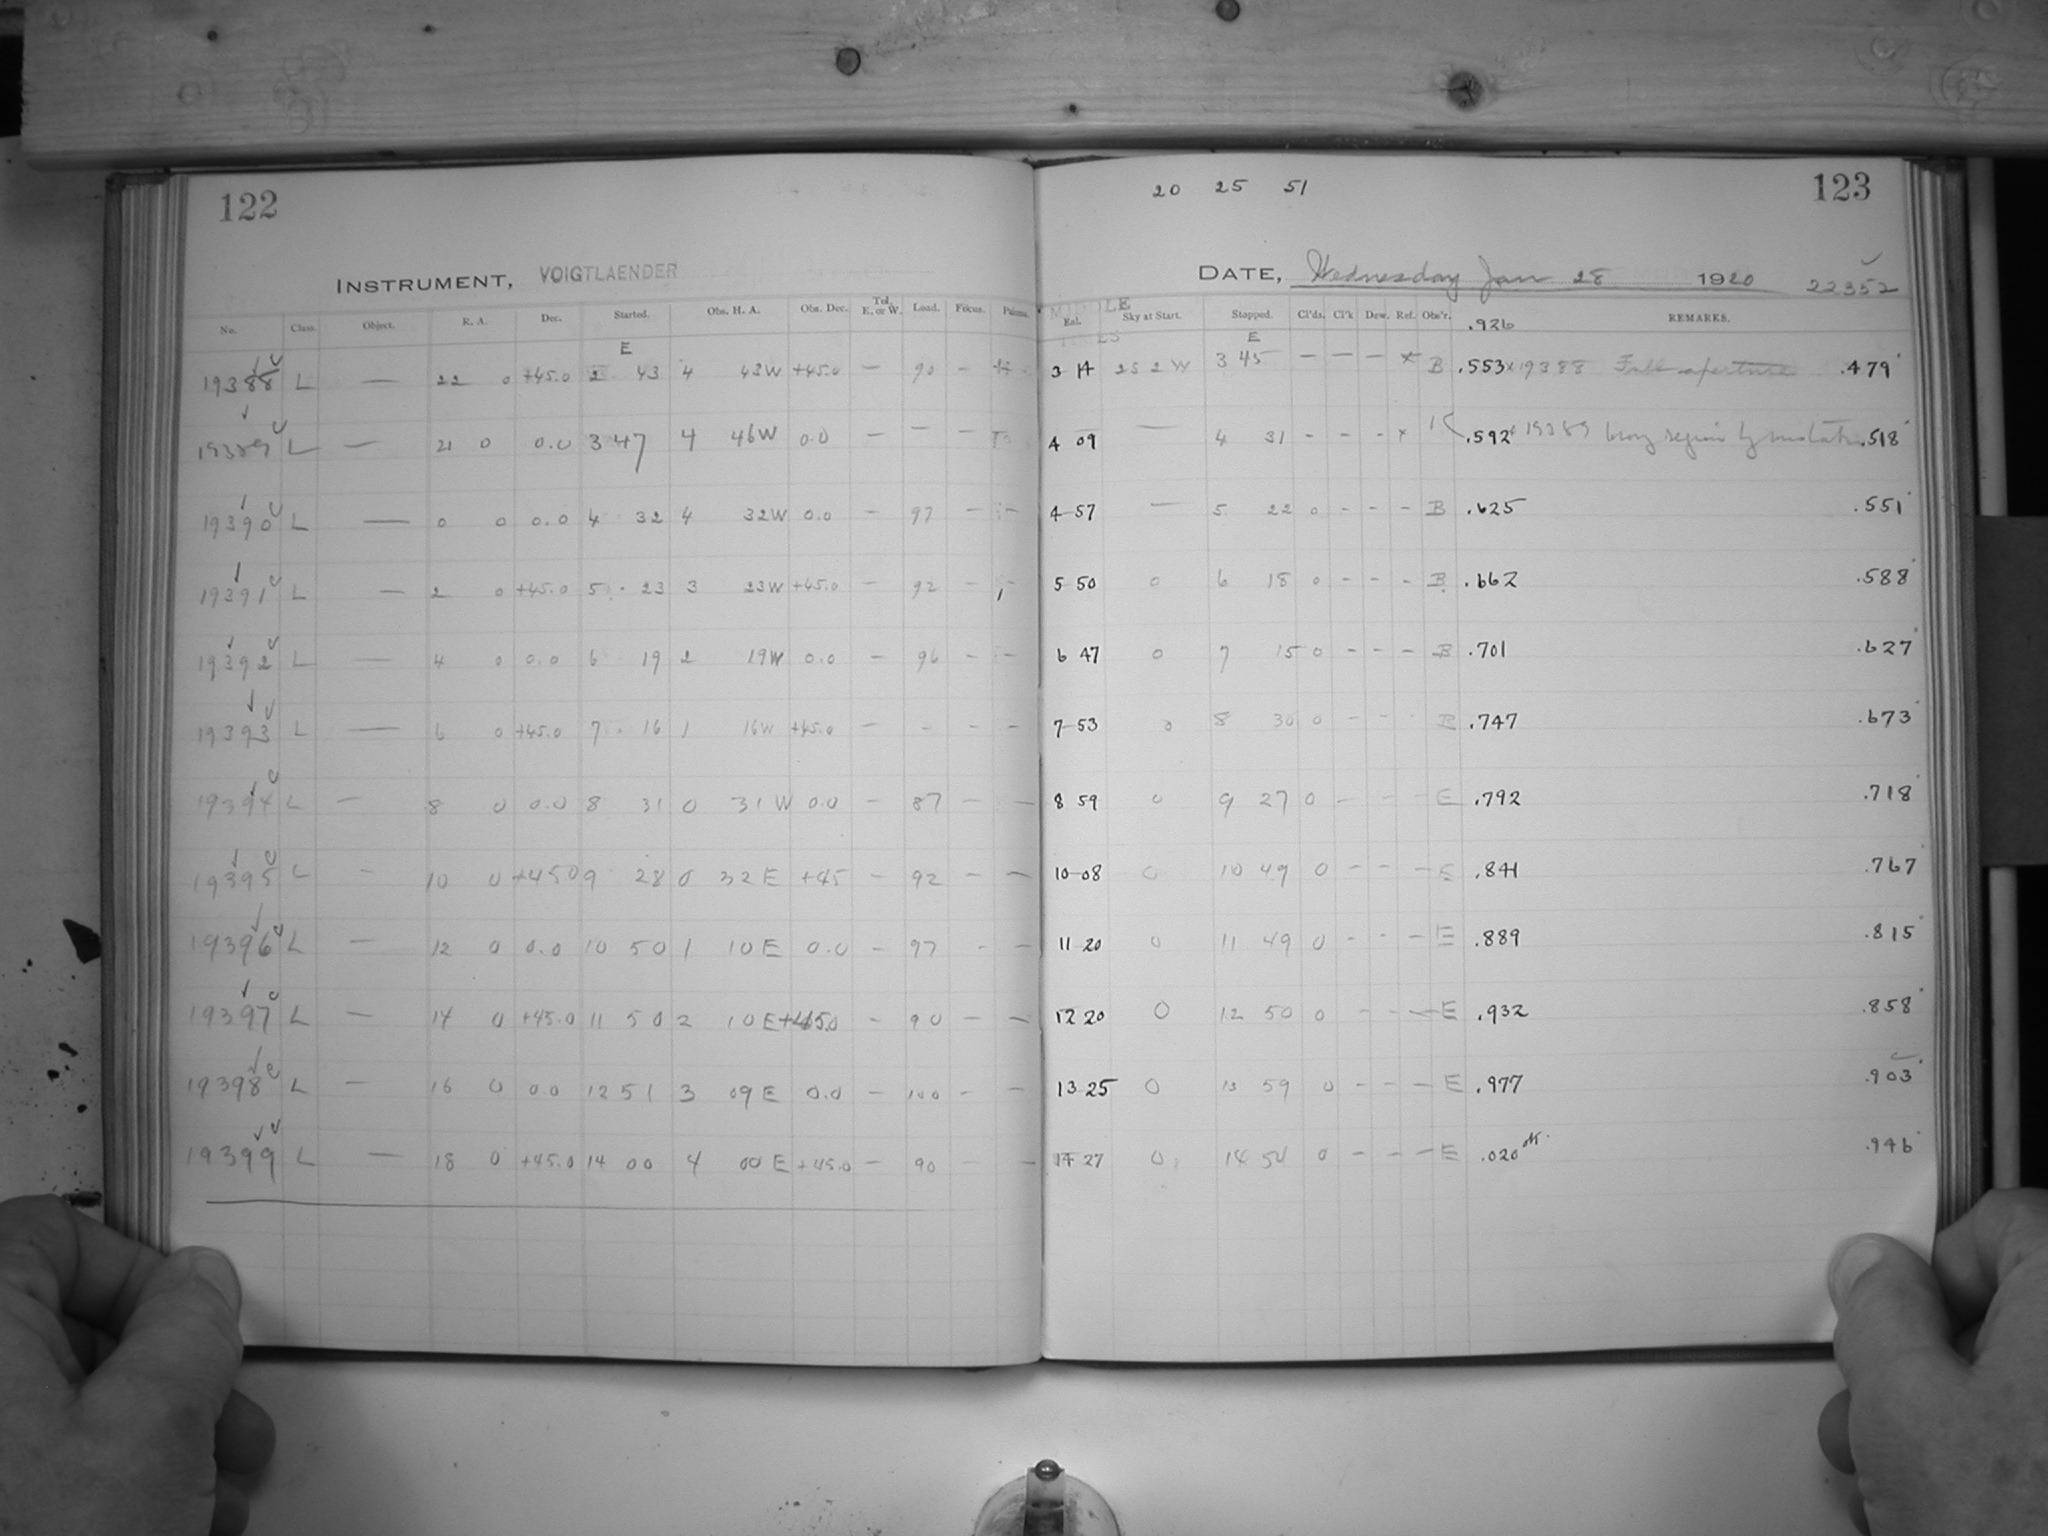 122
INSTRUMENT, VOIGTLAENDER
No. Class. Object. R. A. Dec. Started. Obs. H. A. Obs. Dec. Tel. E. or W. Load. Focus.
E
19388 L — 22 0 +45.0 2 43 4 43W +45.0 — 90 -
19389 L — 21 0 0.0 3 47 4 46W 0.0 — — —
19390 L — 0 0 0.0 4 32 4 32W 0.0 — 97 — —
19391 L — 2 0 +45.0 5 23 3 23W +45.0 — 92 -
19392 L — 4 0 0.0 6 19 2 19W 0.0 — 96 -
19393 L — 6 0 +45.0 7 16 1 16W +45.0 — - - -
19394 L — 8 0 0.0 8 31 0 31W 0.0 - 87 - —
19395 L - 10 0 +45.0 9 28 0 32E +45 - 92 - —
19396 L — 12 0 0.0 10 50 1 10E 0.0 - 97 - —
19397 L — 14 0 +45.0 11 50 2 10E +45.0 - 90 — —
19398 L — 16 0 0.0 12 51 3 09E 0.0 — 100 - —
19399 L — 18 0 +45.0 14 00 4 00E +45.0 — 90 — —
20 25 51
123
DATE, Wednesday Jan 28 1920 22352
MIDDLE
Sky at Start. Stopped. Cl'ds. Cl'k Dew. Ref. Obs'r. .926 REMARKS.
E
3 14 2S 2 W 3 45 — — — x B .553 x 19388 Full aperture .479
4 09 — 4 31 - - - x .592 x 19389 wrong region by mistake .518
4 57 — 5 22 0 - - - B .625 .551
5 50 0 6 18 0 - - - B .662 .588
6 47 0 7 15 0 - - - B .701 .627
7 53 0 8 30 0 - - B .747 .673
8 59 0 9 27 0 — - - E .792 .718
10 08 0 10 49 0 - - — E .841 .767
11 20 0 11 49 0 - - — E .889 .815
12 20 0 12 50 0 - - — E .932 .858
13 25 0 13 59 0 - - — E .977 .903
14 27 0 14 54 0 - - — E .020 ok. .946